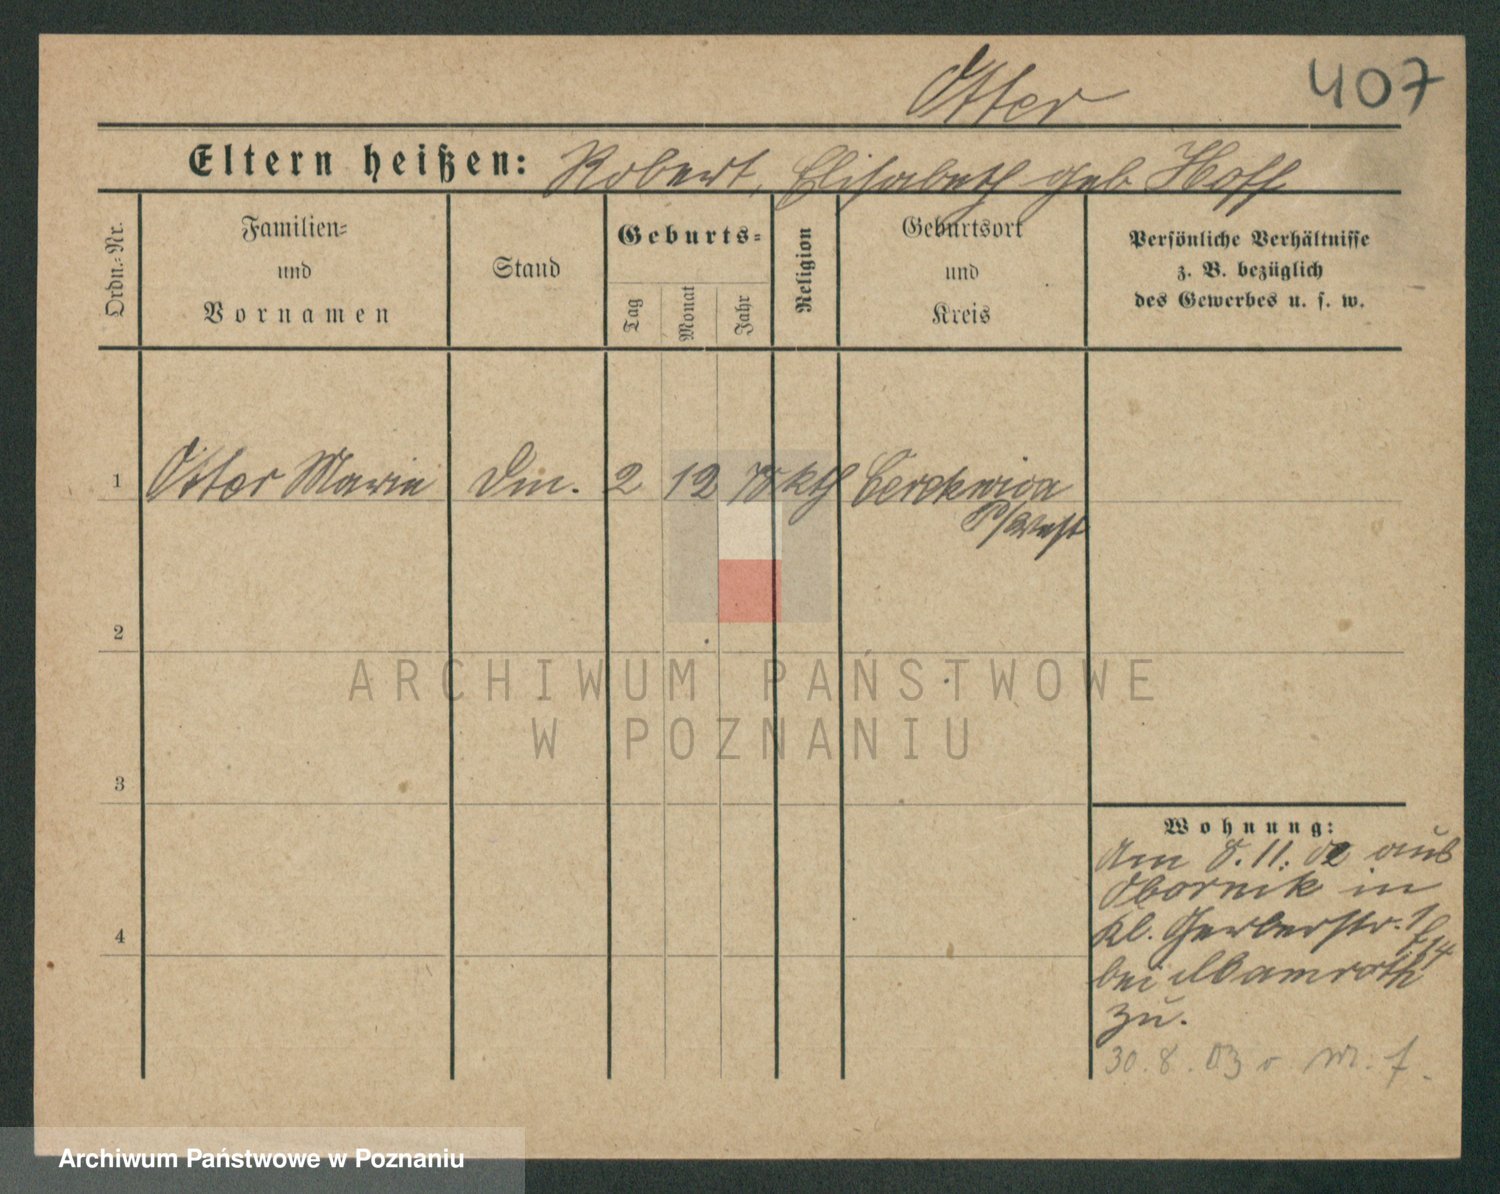 Otter
407
Eltern heißen: Robert, Elisabeth geb Hoff
Ordn.-Nr.
Familien-
und
Vornamen
Stand
Geburts-
Tag
Monat
Jahr
Religion
Geburtsort
und
Kreis
Persönliche Verhältnisse
z. B. bezüglich
des Gewerbes u. s. w.
1 Otter Marie Dm. 2 12 78 kth Cerekwica
P/West
2
ARCHIWUM PAŃSTWOWE
W POZNANIU
3
Wohnung:
Am 8. 11. 02 aus
Obornik in
Kl. Gerberstr.
4
bei Mamroth
zu.
30. 8. 03
Archiwum Państwowe w Poznaniu